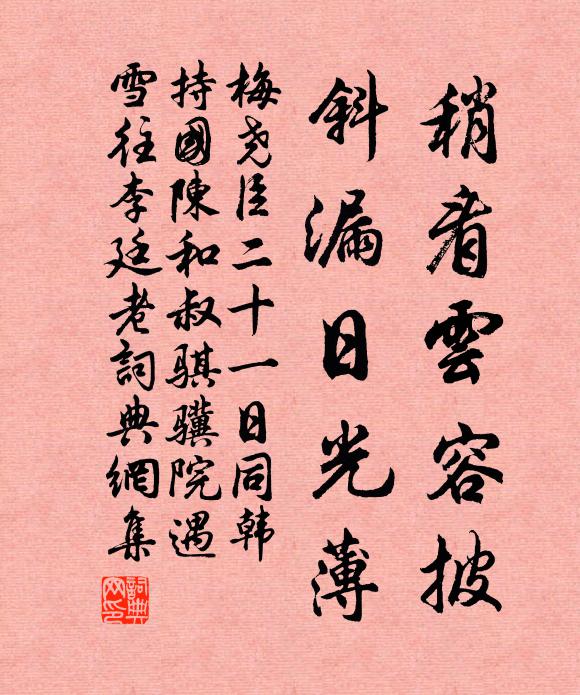 稍看雲容披
斜漏日光薄
梅尧臣二十一日同韩
持國陳和叔騏驥院遇
雪往李廷老詞典網集
詞典网印